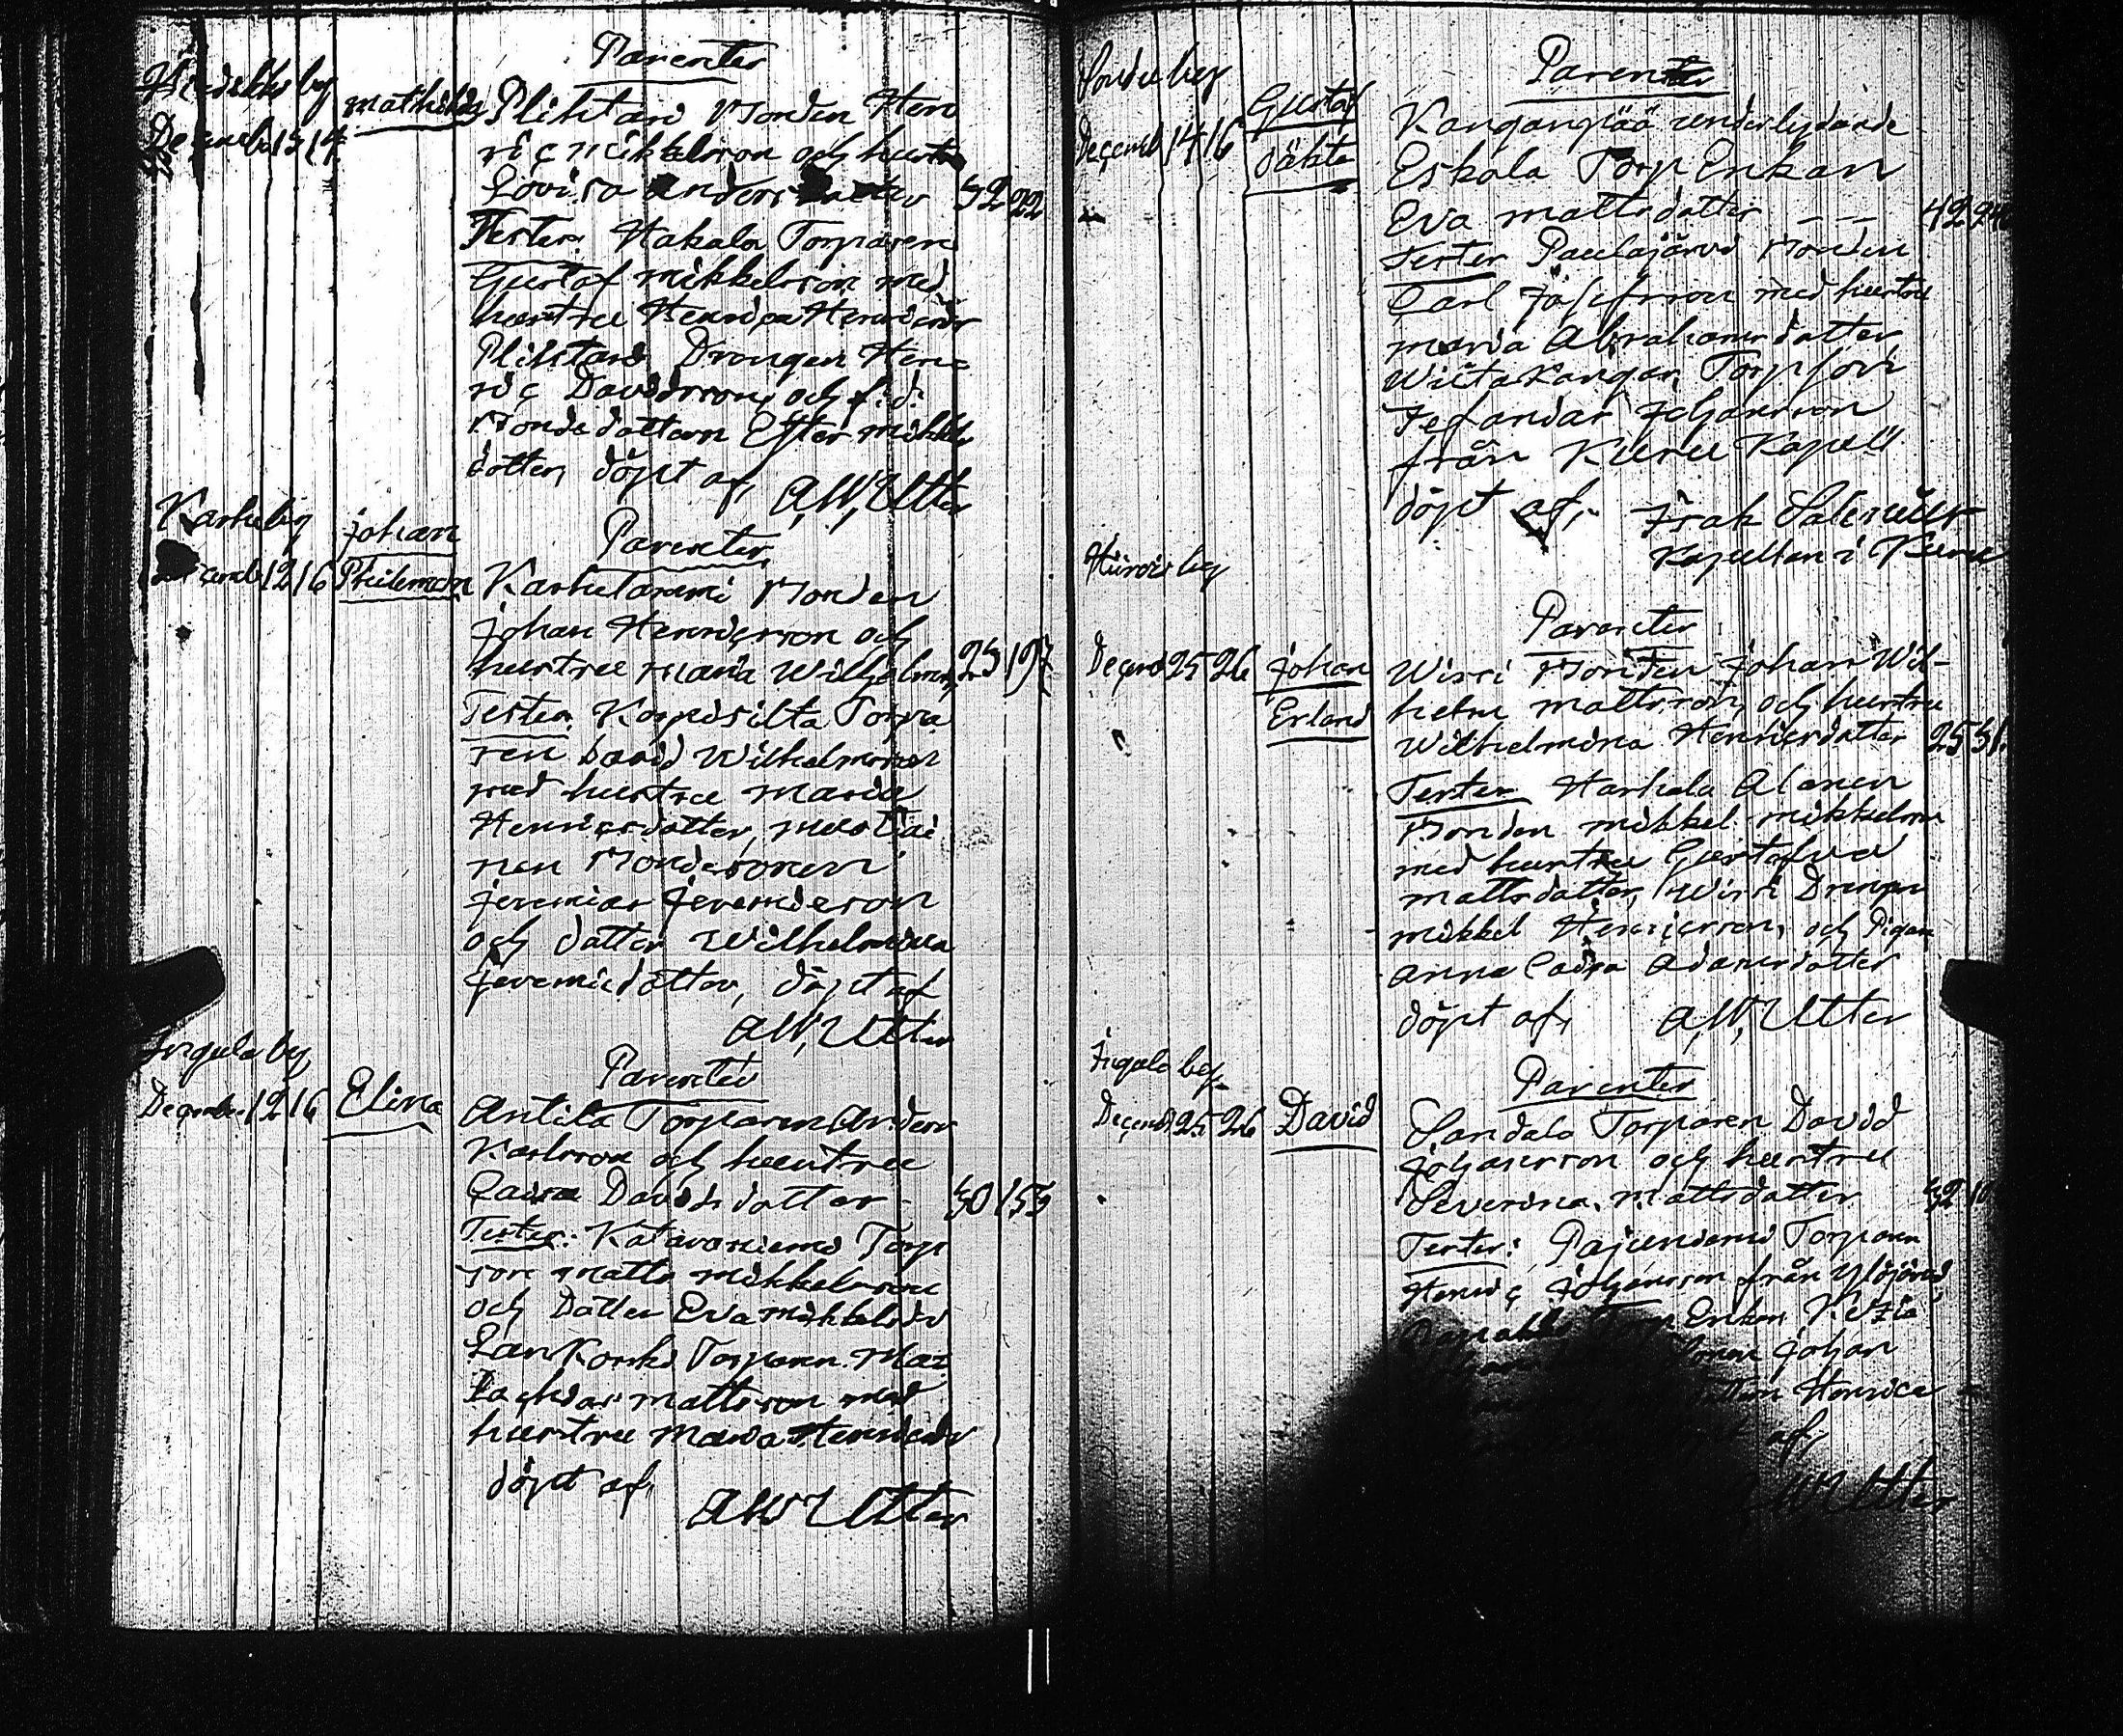 Parenter
by
Decemb 13 14
Mathilda
Plihtari Bonden Hen
ric Mikkelsson och hustru
Lovisa Andersdatter 32 22
Tester: Hakala Torparen
Gustaf Mikkelsson med
hustru Henrica Henricsdr
Plihtari Drengen Hen
ric Davidsson och f: d:
Bonde dottern Ester Mikkels
dotter, döpt af, A.W. Utter
Karhe by
Decemb 12 16
Johan
Philemon
Parenter
Karhetammi Bonden
Johan Henricsson och
hustru Maria Wilhelms 25 197
Tester Korpisilta Torpa
ren David Wilhelmsson
med hustru Maria
Henricsdotter,
nen Bondesonen
Jeremias Jeremiesson
och dotter Wilhelmina
Jeremiedotter, döpt af
A.W. Utter
Ingala by
December 12 16
Elina
Parenter
Antila Torparen Anders
Karlsson och hustru
Caisa Davidsdotter 30 155
Tester: Katavaniemi Torp
son Matts Mikkelsson
och Dotter Eva Mikkelsdr
Lankoski Torparen Mat
Zachias Mattsson med
hustru Maria Henricsdr
döpt af,
A.W. Utter
by
Decemb 14 16
Gustaf
oäkta
Parenter
Kangaspää underlydande
Eskola Torp Enkan
Eva Mattsdotter - - 42
Tester Paulajärvi Bonden
Carl Josefsson med hustru
Maria Abrahamsdotter
Torpson
Johansson
från Kuru Kapell
döpt af, Isak Salenius
Kapellan i Kuru
by
Decemb 25 26
Johan
Erland
Parenter
Wirri Bonden Johan Wil-
helm Mattsson, och hustru
Wilhelmina Henricsdotter 25 31
Tester Harhala Alanen
Bonden Mikkel Mikkelsson
med hustru Gustafva
Mattsdotter, Wirri Drengen
Mikkel Henricsson, och Pigan
Anna Caisa Adamsdotter
döpt af, A.W. Utter
Ingala by
Decemb 25 26
David
Parenter
Sandala Torparen David
Johansson och hustru
Severina Mattsdotter 32
Tester: Pajuniemi Torparen
Henric Johansson från Ylöjärvi,
Torp Enkan Kezia
Sonen Johan
Henrica
af,
A.W. Utter